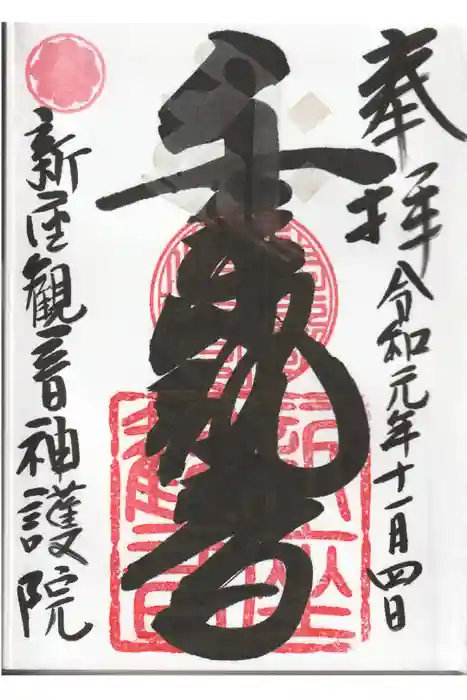 奉拝
令和元年十一月四日
千手観音
新座観音神護院